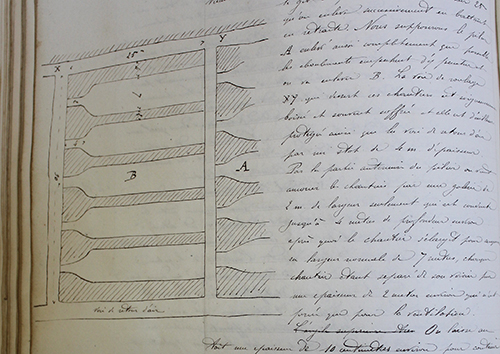 qu'on enlève successivement en battant
en retraite. Nous supposons le pilier
A enlevé aussi complètement que possible
les éboulements empêchent d'y pénétrer et
on en enlève B. La voie de roulage
XY qui dessert ces chantiers est
boisée et souvent
protégée ainsi que la voie de retour d'air
par un stot de 4 m d'épaisseur
Par la partie antérieure du pilier on vient
amorcer le chantier par une galerie de
2 m. de largeur seulement que l'on conduit
jusqu'à 4 mètres de profondeur environ
après quoi le chantier s'élargit pour
sa largeur normale de 7 mètres, chaque
chantier étant séparé de son voisin par
une épaisseur de 2 mètres environ qui n'est
percée que pour la ventilation.
On laisse au
toit une épaisseur de 10 centimètres environ pour
X
Y
15 m
A
B
Voie de retour d'air